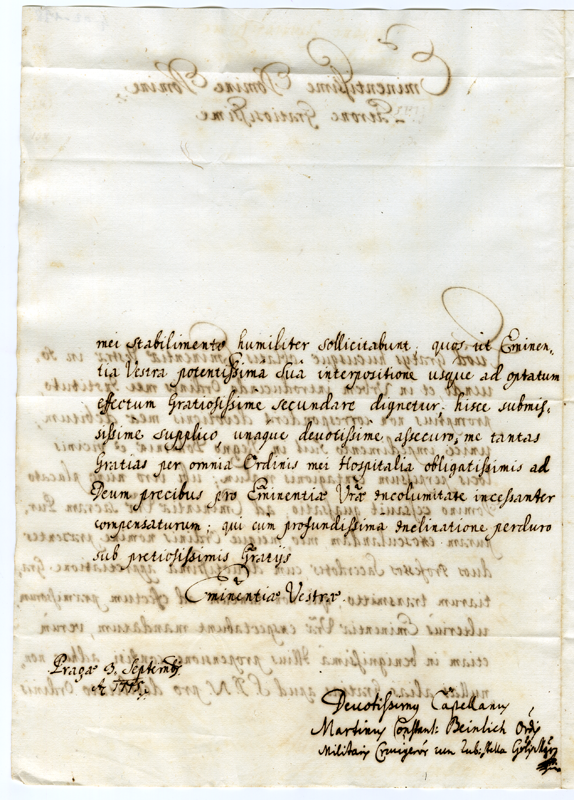 mei stabilimento humiliter sollicitabunt; quos ut Eminen-
tia Vestra potentissima sua interpositione usque ad optatum
effectum Gratiosissime secundare dignetur, hisce submis-
sissime supplico, unaque devotissime assecuro, me tantas
Gratias per omnia Ordinis mei Hospitalia obligatissimis ad
Deum precibus pro Eminentiæ Vræ incolumitate incessanter
compensaturum; qui cum profundissima inclinatione perduro
sub pretiosissimis Gratijs
Eminentiæ Vestræ.
Pragæ 3. Septemb
Devotissimus Capellanus
Martinus Constant: Beinlich Ord
Militaris Crucigerór cum rub: stella